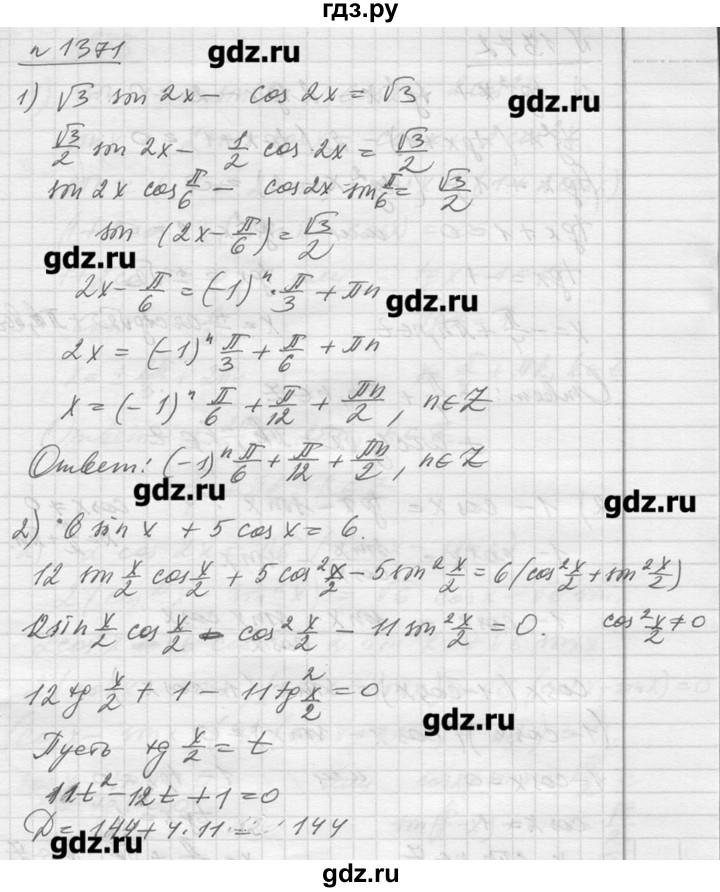 гдз.ру
n 1371
gdz.ru
1) √3 sin 2x − cos 2x = √3
gdz.ru
√3/2 sin 2x − 1/2 cos 2x = √3/2
sin 2x cos π/6 − cos 2x sin π/6 = √3/2
sin (2x − π/6) = √3/2
gdz.ru
2x − π/6 = (−1)ⁿ · π/3 + πn
gdz.ru
2x = (−1)ⁿ π/3 + π/6 + πn
x = (−1)ⁿ π/6 + π/12 + πn/2, n∈Z
Ответ: (−1)ⁿ π/6 + π/12 + πn/2, n∈Z
gdz.ru
gdz.ru
2) 6 sin x + 5 cos x = 6.
12 sin x/2 cos x/2 + 5 cos² x/2 − 5 sin² x/2 = 6(cos² x/2 + sin² x/2)
12 sin x/2 cos x/2 − cos² x/2 − 11 sin² x/2 = 0. cos² x/2 ≠ 0
12 tg x/2 + 1 − 11 tg² x/2 = 0
gdz.ru
Пусть tg x/2 = t
11t² − 12t + 1 = 0
D = 144 + 4·11 = 144
gdz.ru
gdz.ru